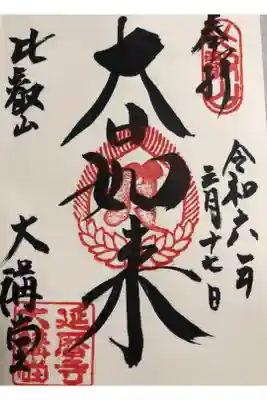 奉拝
令和六年
三月十七日
大日如来
比叡山
大講堂
延暦寺